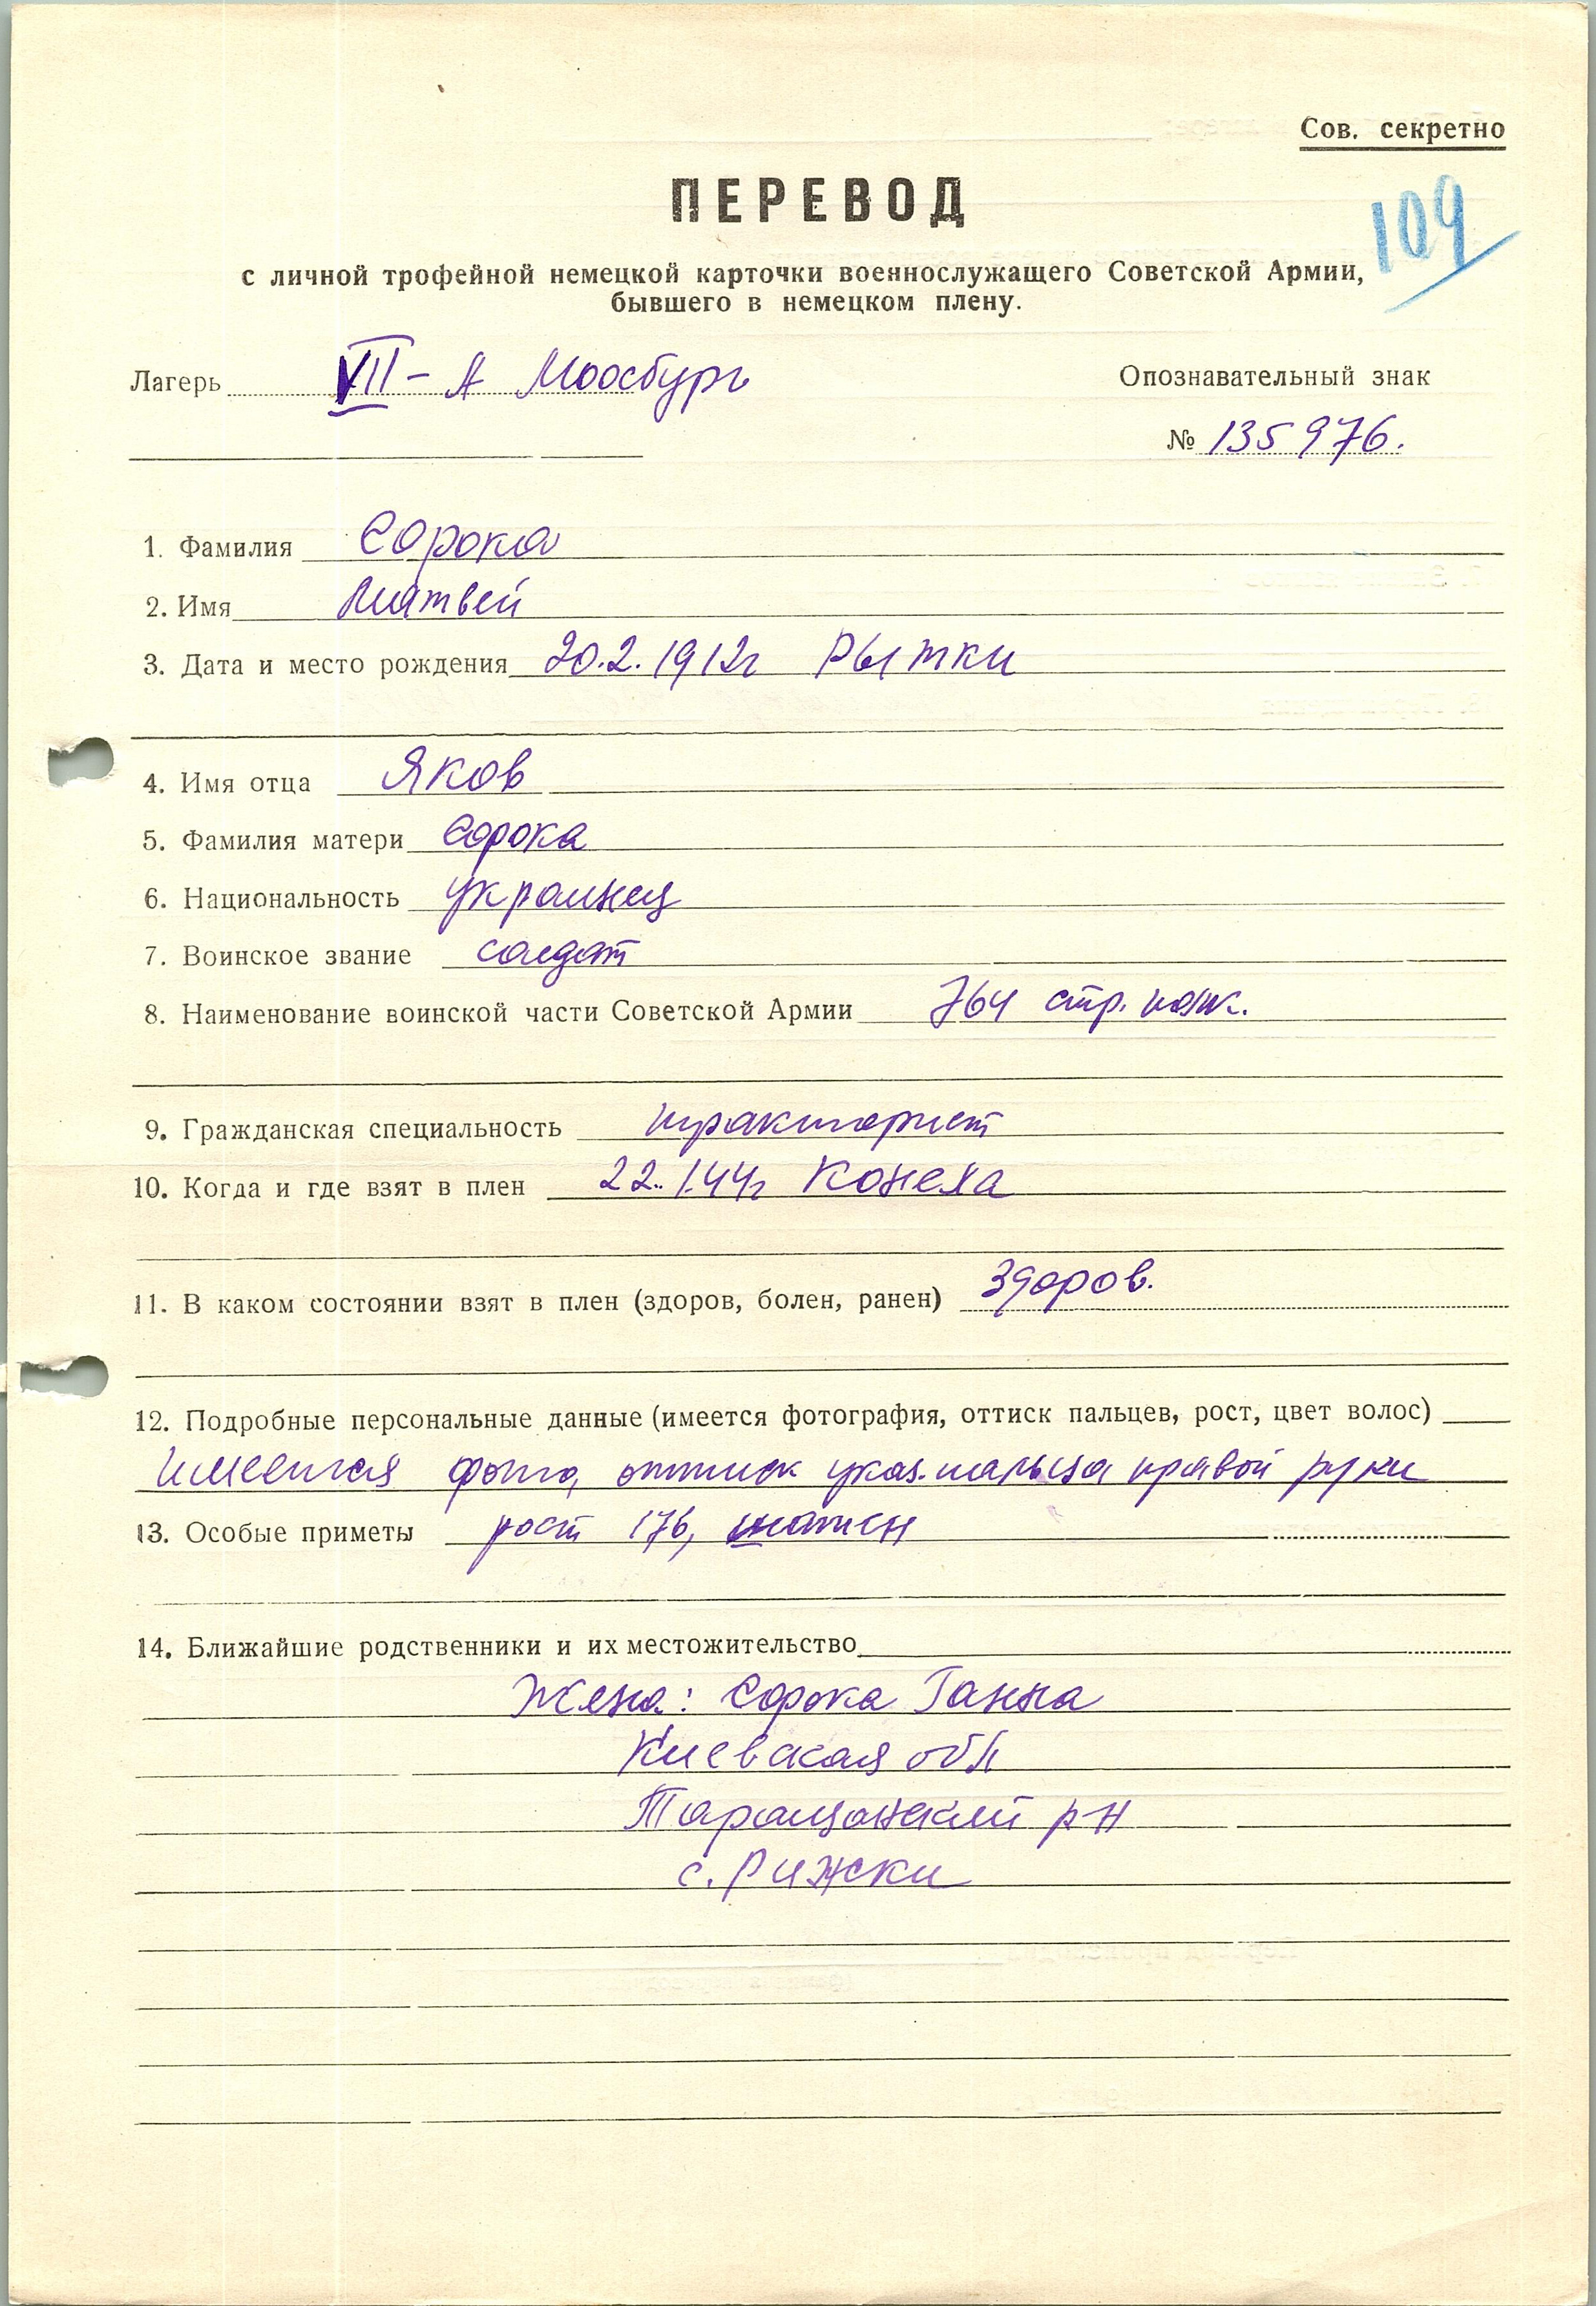 Сов. секретно
ПЕРЕВОД
109
с личной трофейной немецкой карточки военнослужащего Советской Армии,
бывшего в немецком плену.
Лагерь VII-А Моосбург Опознавательный знак
№ 135976.
1. Фамилия Сорока
2. Имя Матвей
3. Дата и место рождения 20.2.1912г Рытки
4. Имя отца Яков
5. Фамилия матери Сорока
6. Национальность украинец
7. Воинское звание солдат
8. Наименование воинской части Советской Армии 764 стр. полк.
9. Гражданская специальность тракторист
10. Когда и где взят в плен 22.1.44г Конела
11. В каком состоянии взят в плен (здоров, болен, ранен) здоров.
12. Подробные персональные данные (имеется фотография, оттиск пальцев, рост, цвет волос)
имеется фото, оттиск указ. пальца правой руки
13. Особые приметы рост 176, шатен
14. Ближайшие родственники и их местожительство
Жена: Сорока Ганна
Киевская обл
Таращанский р-н
с. Рижски